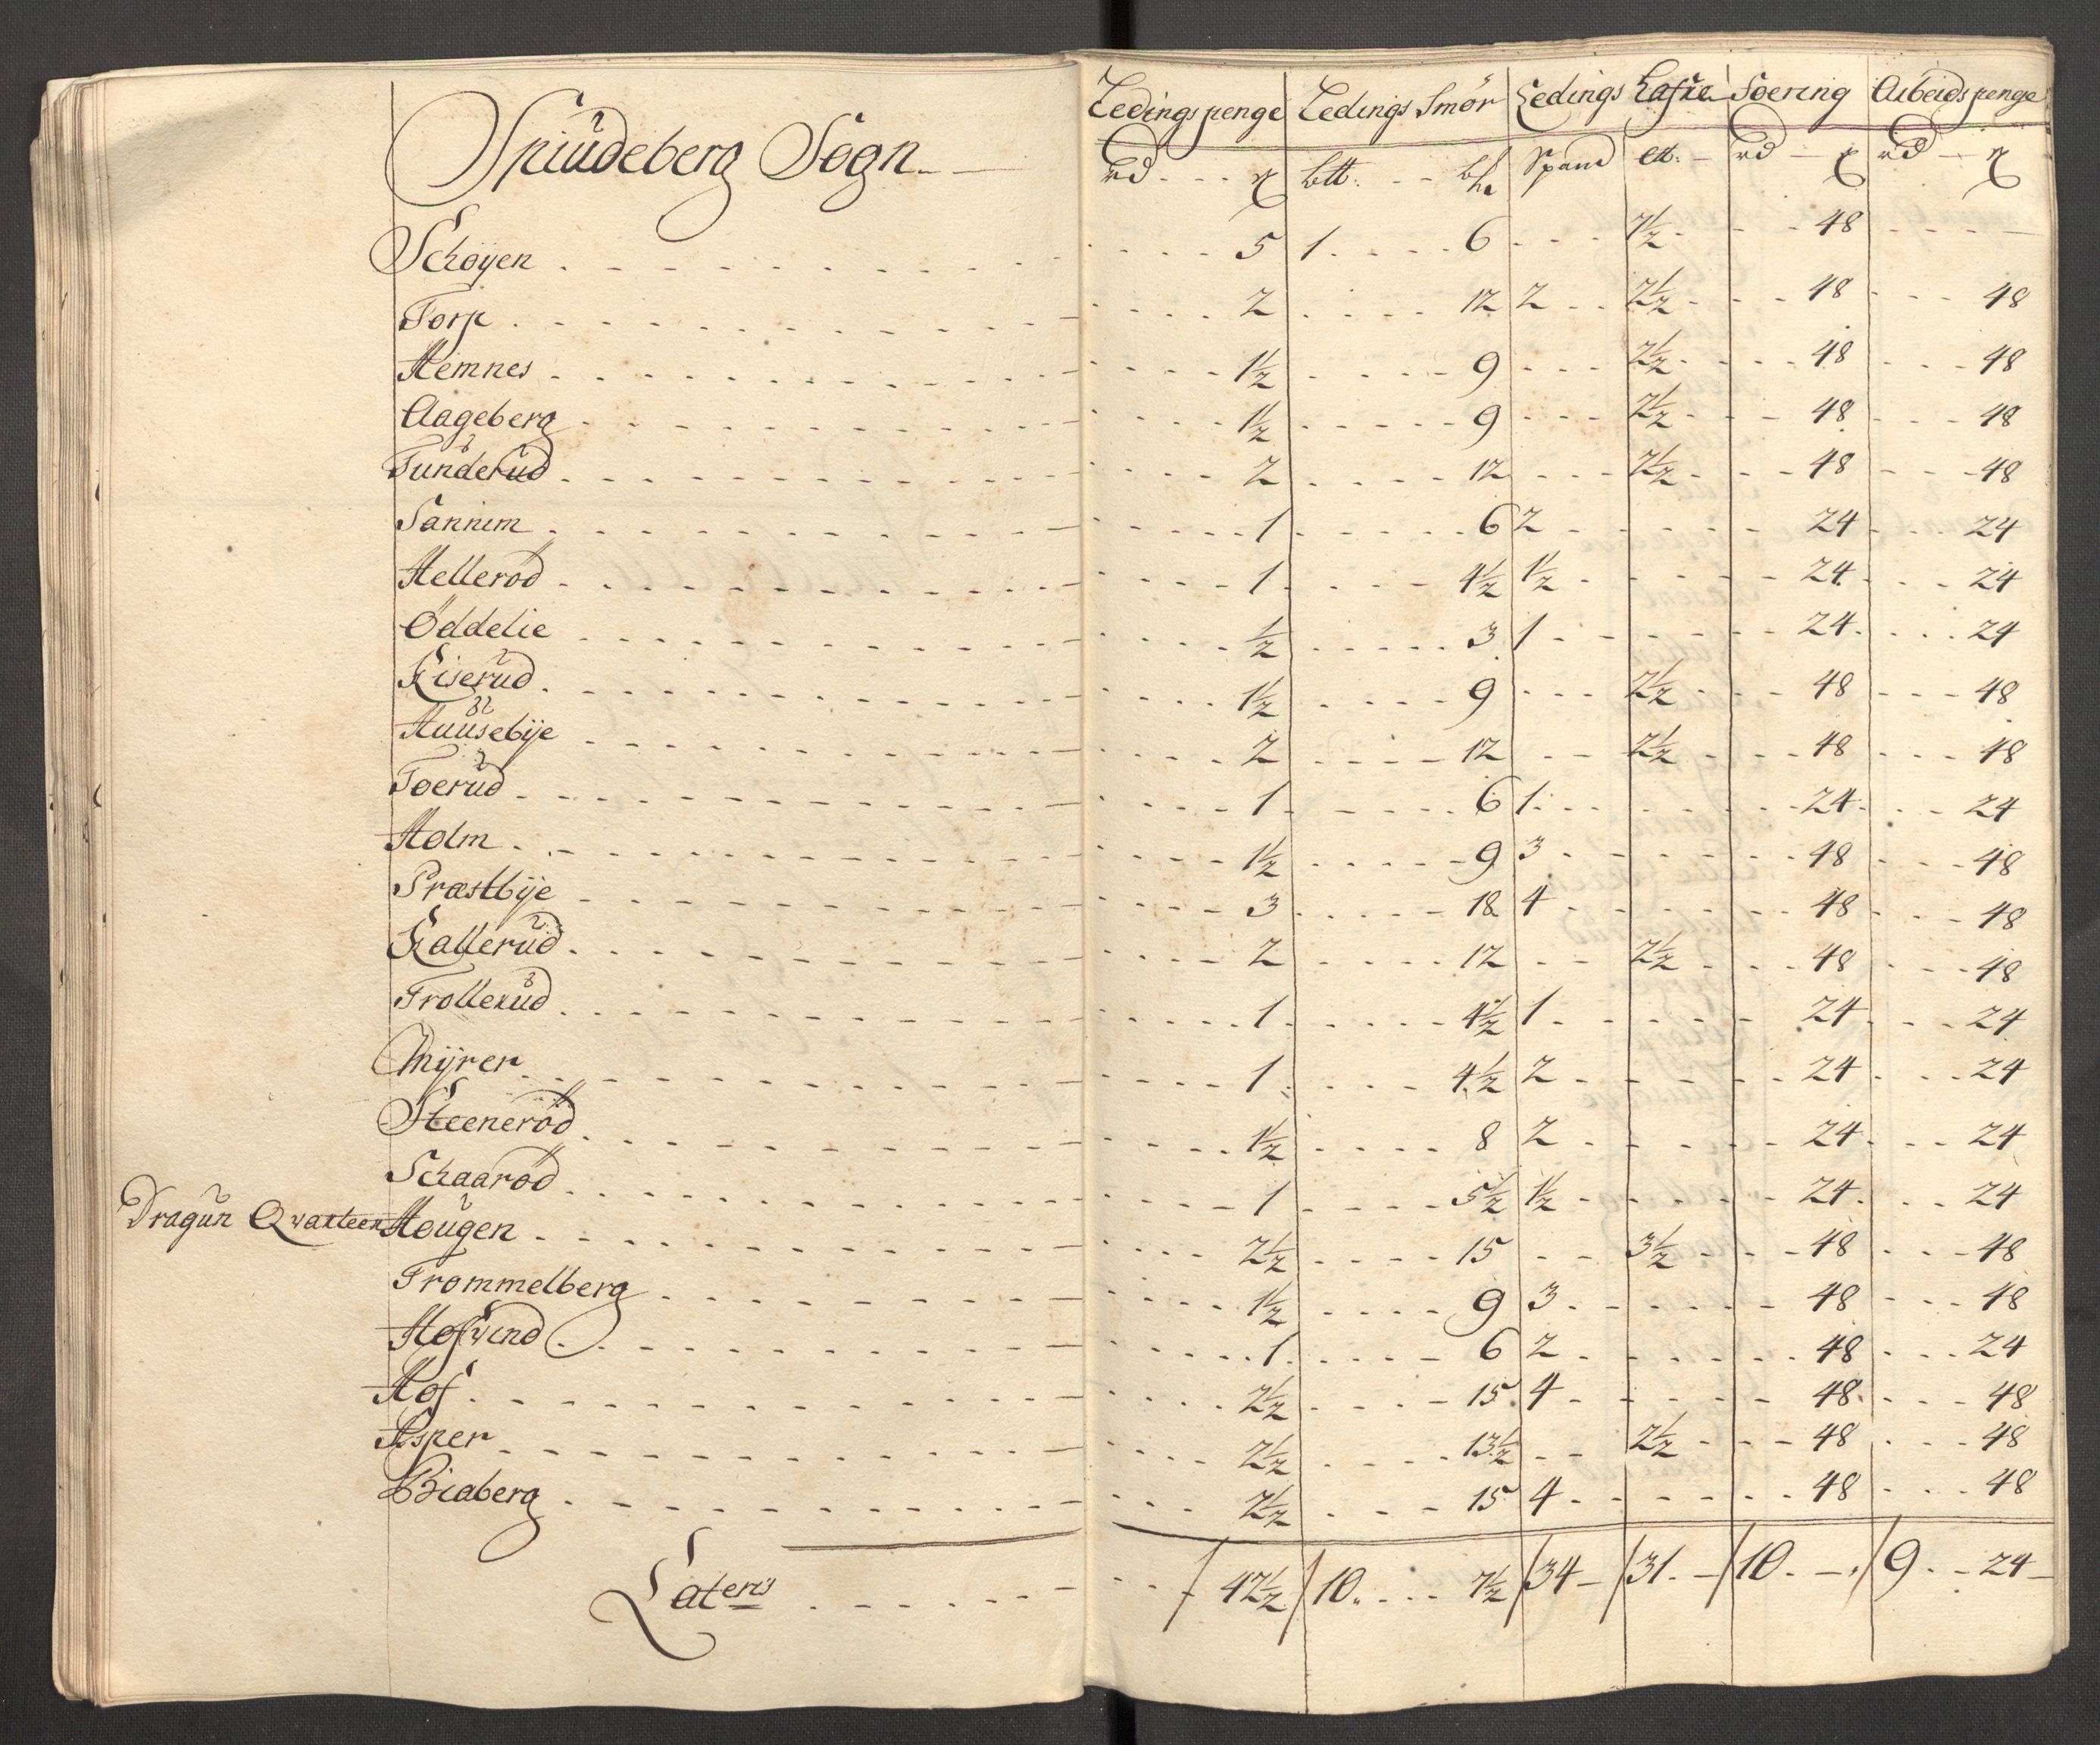 Spiudeberg Sogn
Ledingspenge Ledings Smør Ledings Hafre Foering Arbeidspenge
rd ß btt: bh Spand ett: rd ß rd ß
Schøÿen 5 1 6 7½ 48
Torp 2 12 2 2½ 48 48
Hemnes 1½ 9 2½ 48 48
Aageberg 1½ 9 2½ 48 48
Funderud 2 12 2½ 48 48
Sannem 1 6 2 24 24
Hellerød 1 4½ 1½ 24 24
Oddelie ½ 3 1 24 24
Kiserud 1½ 9 2½ 48 48
Huusebÿe 2 12 2½ 48 48
Toerud 1 6 1 24 24
Holm 1½ 9 3 48 48
Præstbÿe 3 18 4 48 48
Kallerud 2 12 2½ 48 48
Trollerud 1 4½ 1 24 24
Mÿrer 1 4½ 2 24 24
Steenerød 1½ 8 2 24 24
Schaarød 1 5½ 1½ 24 24
Dragun Qvarteer Hougen 2½ 15 3½ 48 48
Trommelberg 1½ 9 3 48 48
Hofvind 1 6 2 48 24
Hof 2½ 15 4 48 48
Asper 2½ 13½ 2½ 48 48
Biaberg 2½ 15 4 48 48
Lateris 42½ 10 7½ 34 31 10 9 24